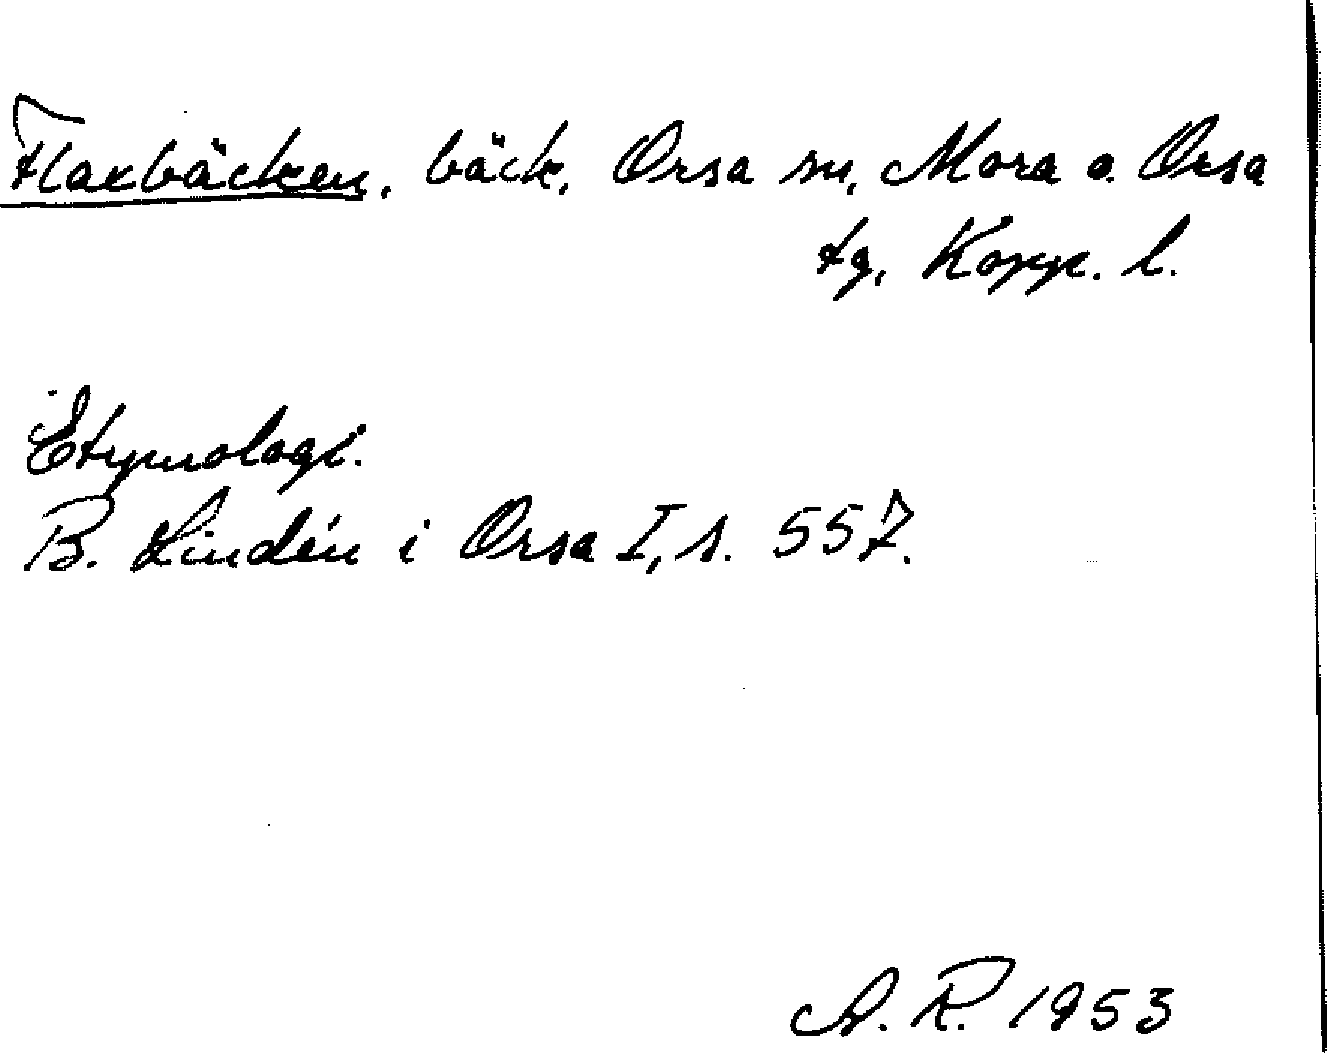 Flaxbäcken, bäck, Orsa sn, Mora o. Orsa
tg, Kopp. l.
Etymologi.
B. Lindén i Orsa I, s. 557.
A. R. 1953